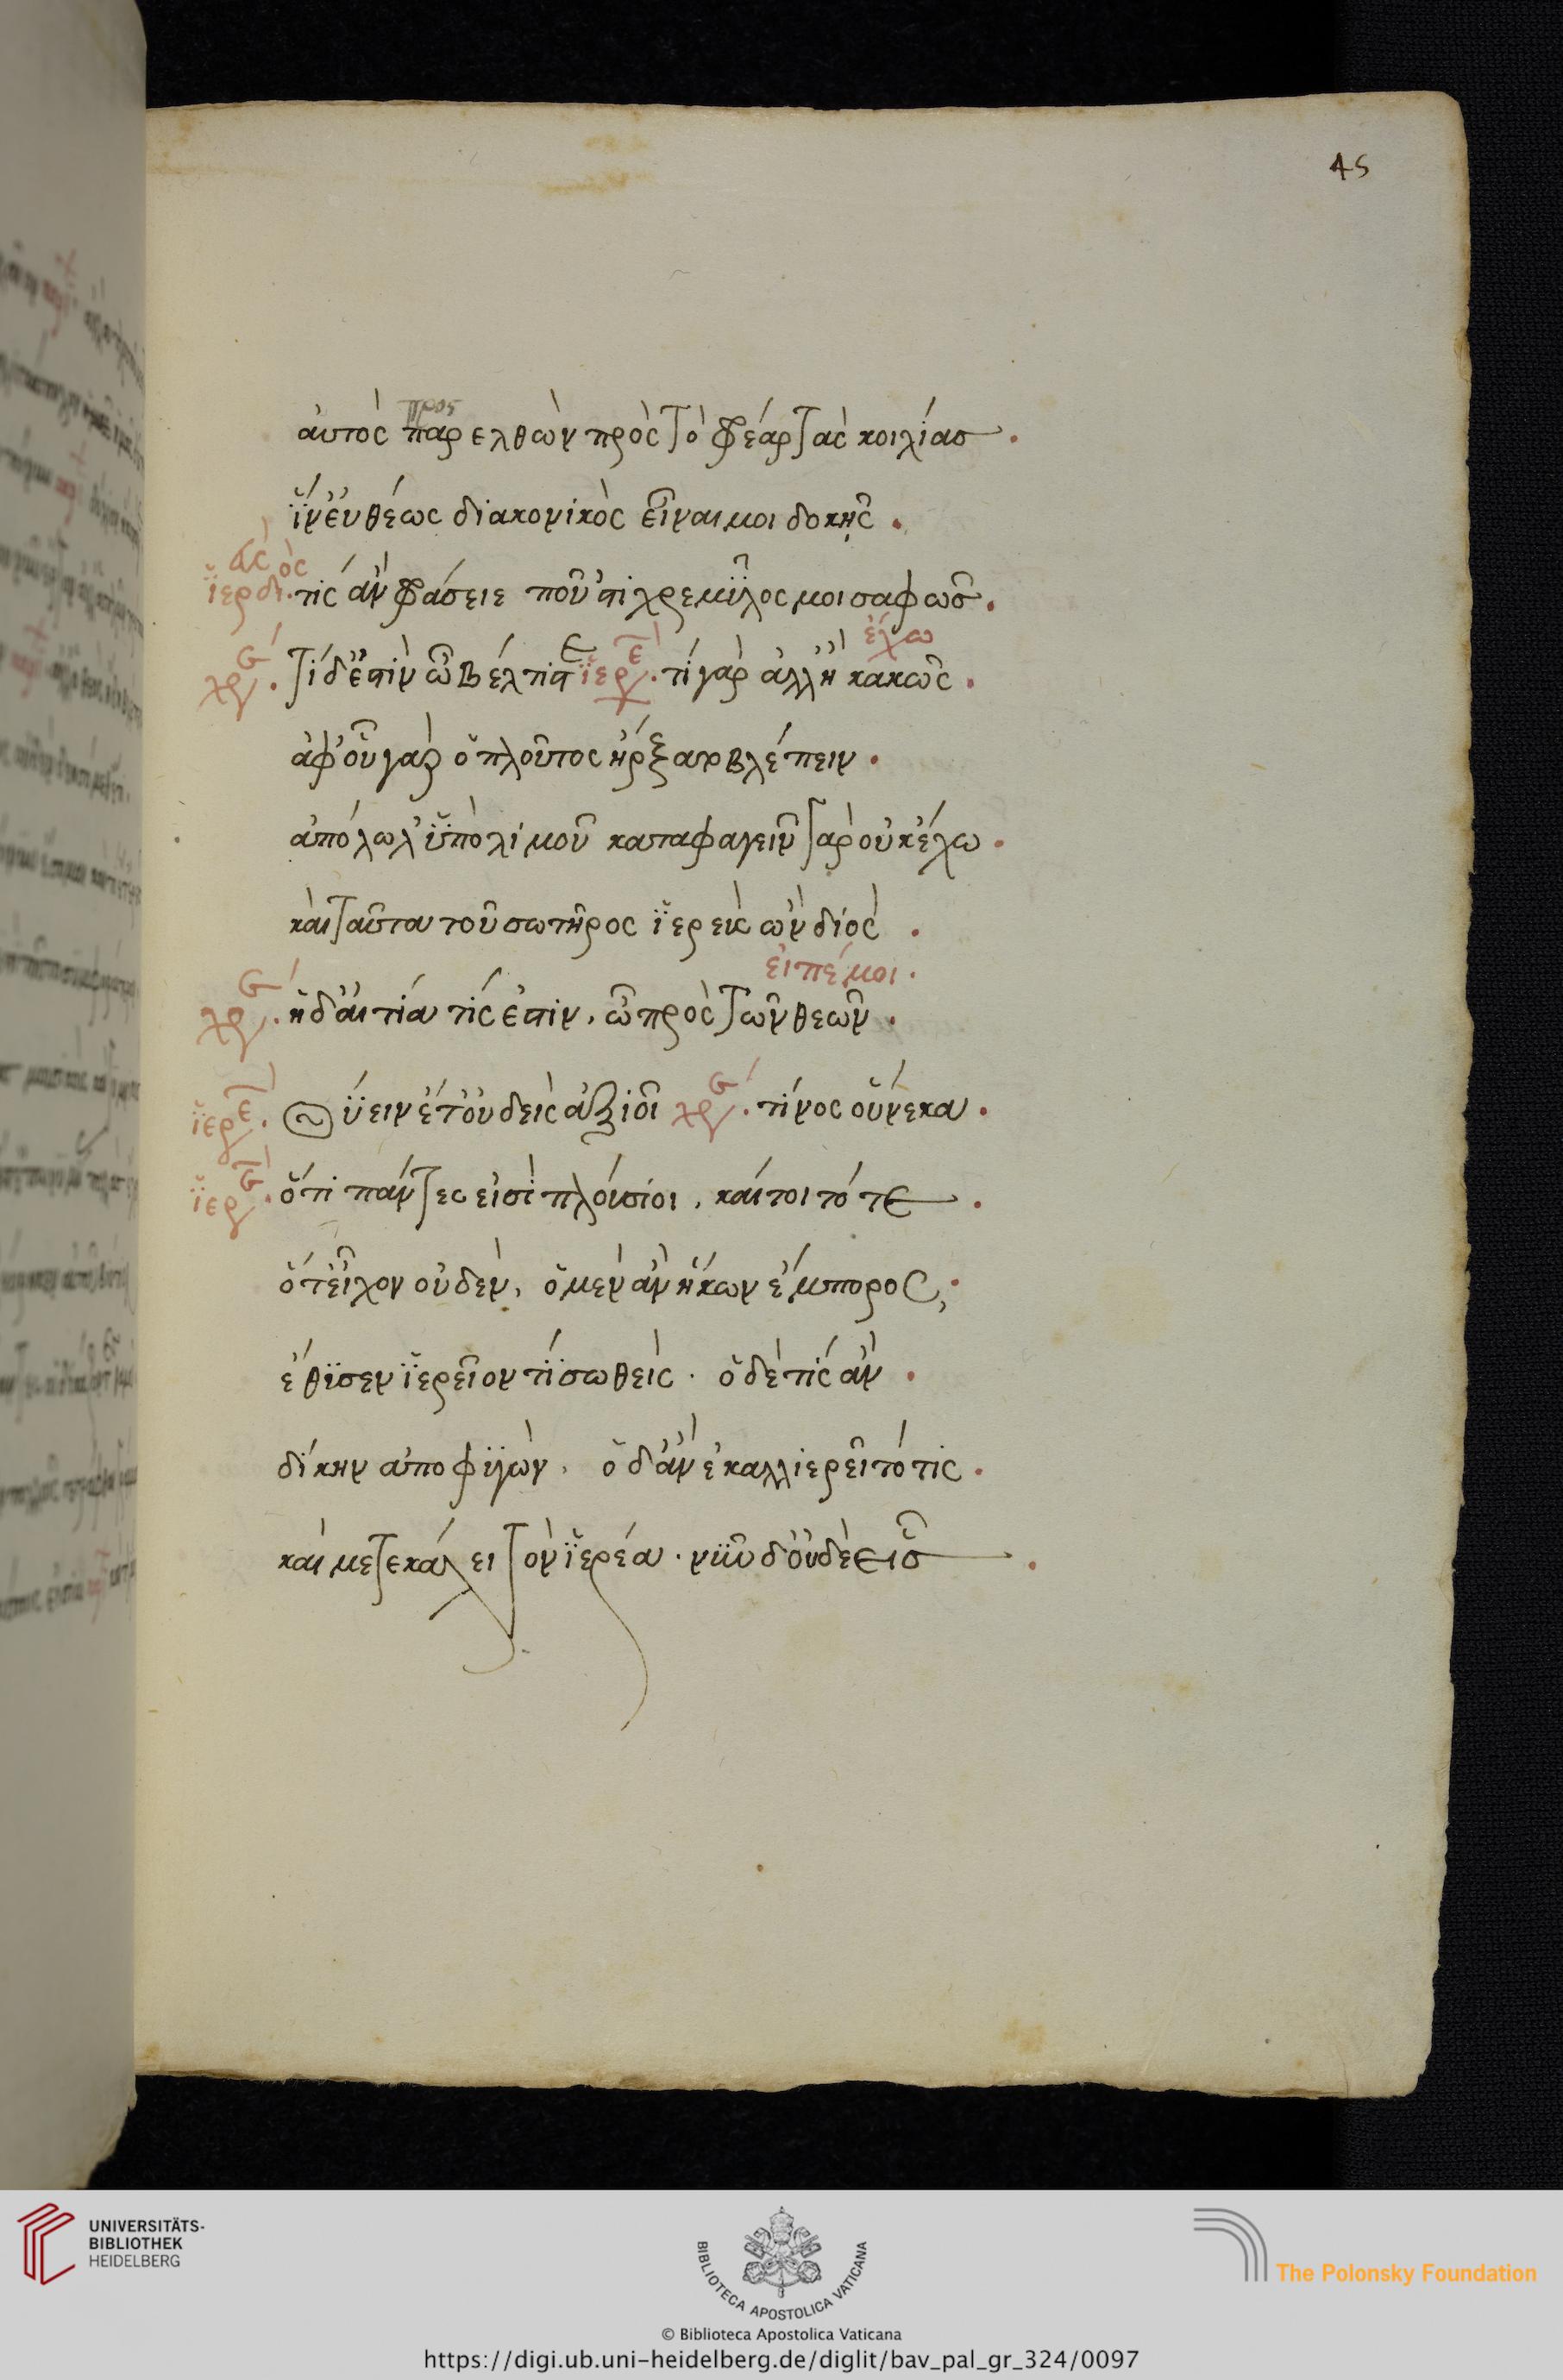 45
προς
αὐτὸς παρελθὼν πρὸς τὸ φρέαρ τὰς κοιλίας.
ἵν εὐθέως διακονικὸς εἶναι μοι δοκῇς.
ἱερ δί. τίς ἂν φράσειε ποῦ ’στι χρεμύλος μοι σαφῶς.
ἔχω
χρ. τί δ’ ἔστιν ὦ βέλτιστε ἱερε. τί γὰρ ἀλλ’ ἢ κακῶς.
ἀφ’ οὗ γὰρ ὁ πλοῦτος ἤρξατο βλέπειν.
ἀπόλωλ’ ὑπὸ λιμοῦ καταφαγεῖν γὰρ οὐκ ἔχω.
καὶ ταῦτα τοῦ σωτῆρος ἱερεὺς ὢν διός.
εἰπέ μοι.
χρ. ἡ δ’ αἰτία τίς ἐστιν, ὦ πρὸς τῶν θεῶν.
ἱερε. θύειν ἔτ’ οὐδεὶς ἀξιοῖ χρ. τίνος οὕνεκα.
ἱερ. ὅτι πάντες εἰσὶ πλούσιοι, καίτοι τότε.
ὅτ’ εἶχον οὐδὲν, ὁ μὲν ἂν ἥκων ἔμπορος,
ἔθυσεν ἱερεῖόν τι σωθείς. ὁ δέ τις ἂν.
δίκην ἀποφυγών. ὁ δ’ ἂν ἐκαλλιερεῖτό τις.
καὶ μετεκάλει τὸν ἱερέα. νῦν δ’ οὐδὲ εἷς.
UNIVERSITÄTS-
BIBLIOTHEK
HEIDELBERG
BIBLIOTECA APOSTOLICA VATICANA
The Polonsky Foundation
© Biblioteca Apostolica Vaticana
https://digi.ub.uni-heidelberg.de/diglit/bav_pal_gr_324/0097